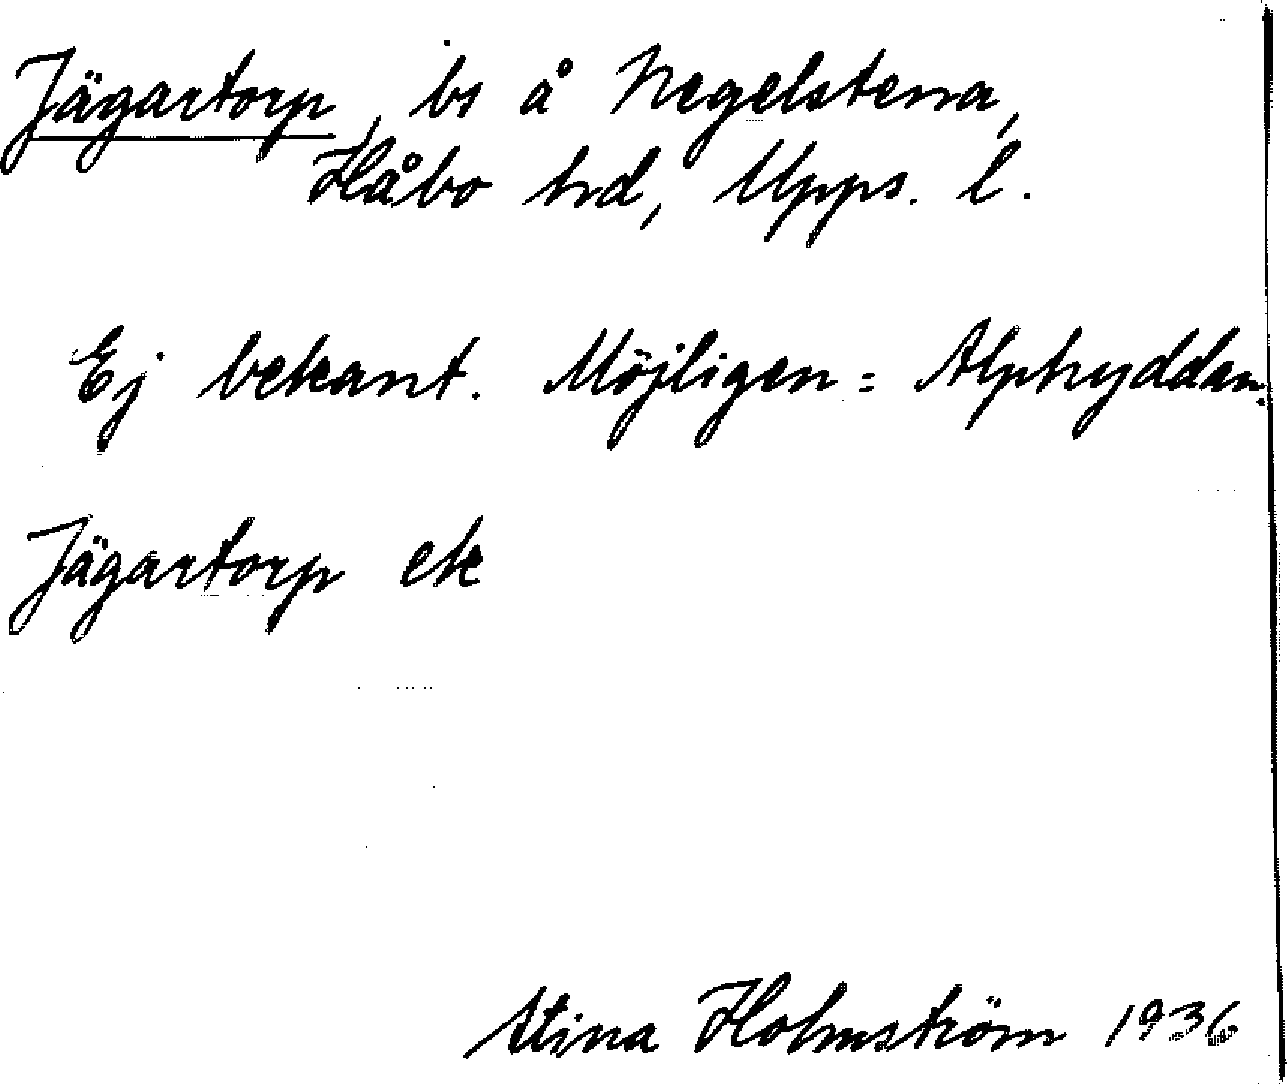 Jägartorp, bs å Negelstena,
Håbo hrd, Upps. l.
Ej bekant. Möjligen = Alphyddan.
Jägartorp ek
Stina Holmström 1936